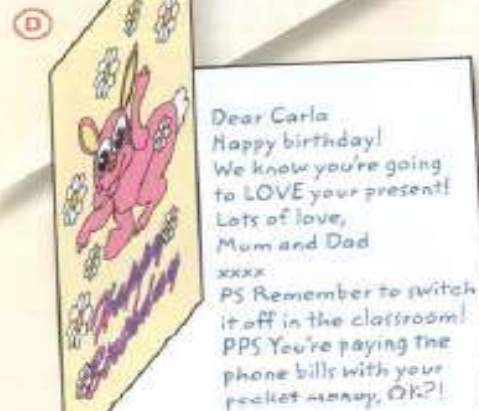 D
Happy
Birthday
Dear Carla
Happy birthday!
We know you're going
to LOVE your present!
Lots of love,
Mum and Dad
xxxx
PS Remember to switch
it off in the classroom!
PPS You're paying the
phone bills with your
pocket money, OK?!